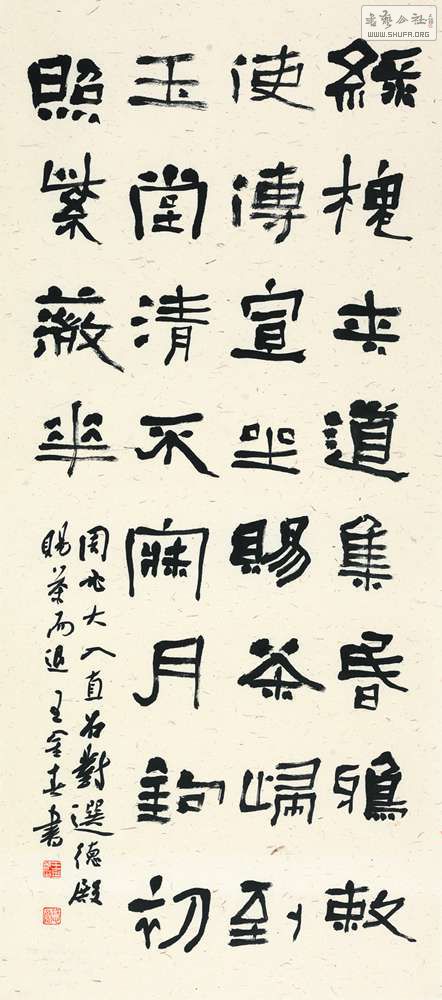 綠槐夾道集昏鴉敕
使傳宣坐賜茶歸到
玉堂清不寐月鉤初
照紫薇花
周必大入直召對選德殿
賜茶而退 王書
書藝公社
WWW.SHUFA.ORG